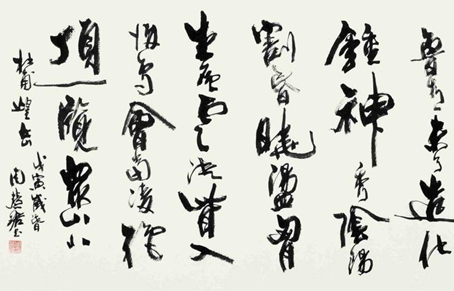 魯青未了造化
鍾神秀陰陽
割昏曉盪胸
生层云决眥入
归鸟會當凌絕
頂一覽眾山小
杜甫望岳
戊寅歲春
周慧珺